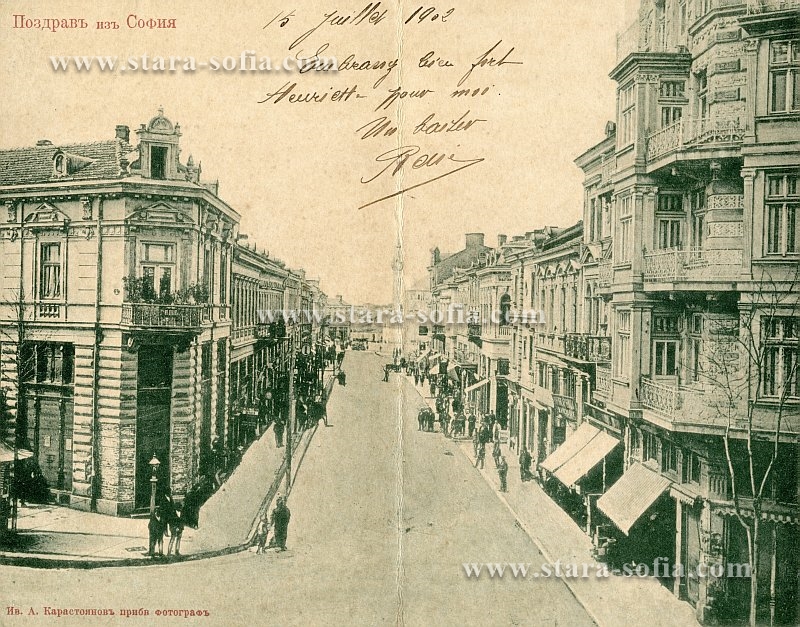 Поздравъ изъ София
15 Juillet 1902
Embrassez bien fort
Henriette pour moi
Un baiser
www.stara-sofia.com
www.stara-sofia.com
www.stara-sofia.com
Ив. А. Карастояновъ придв фотографъ